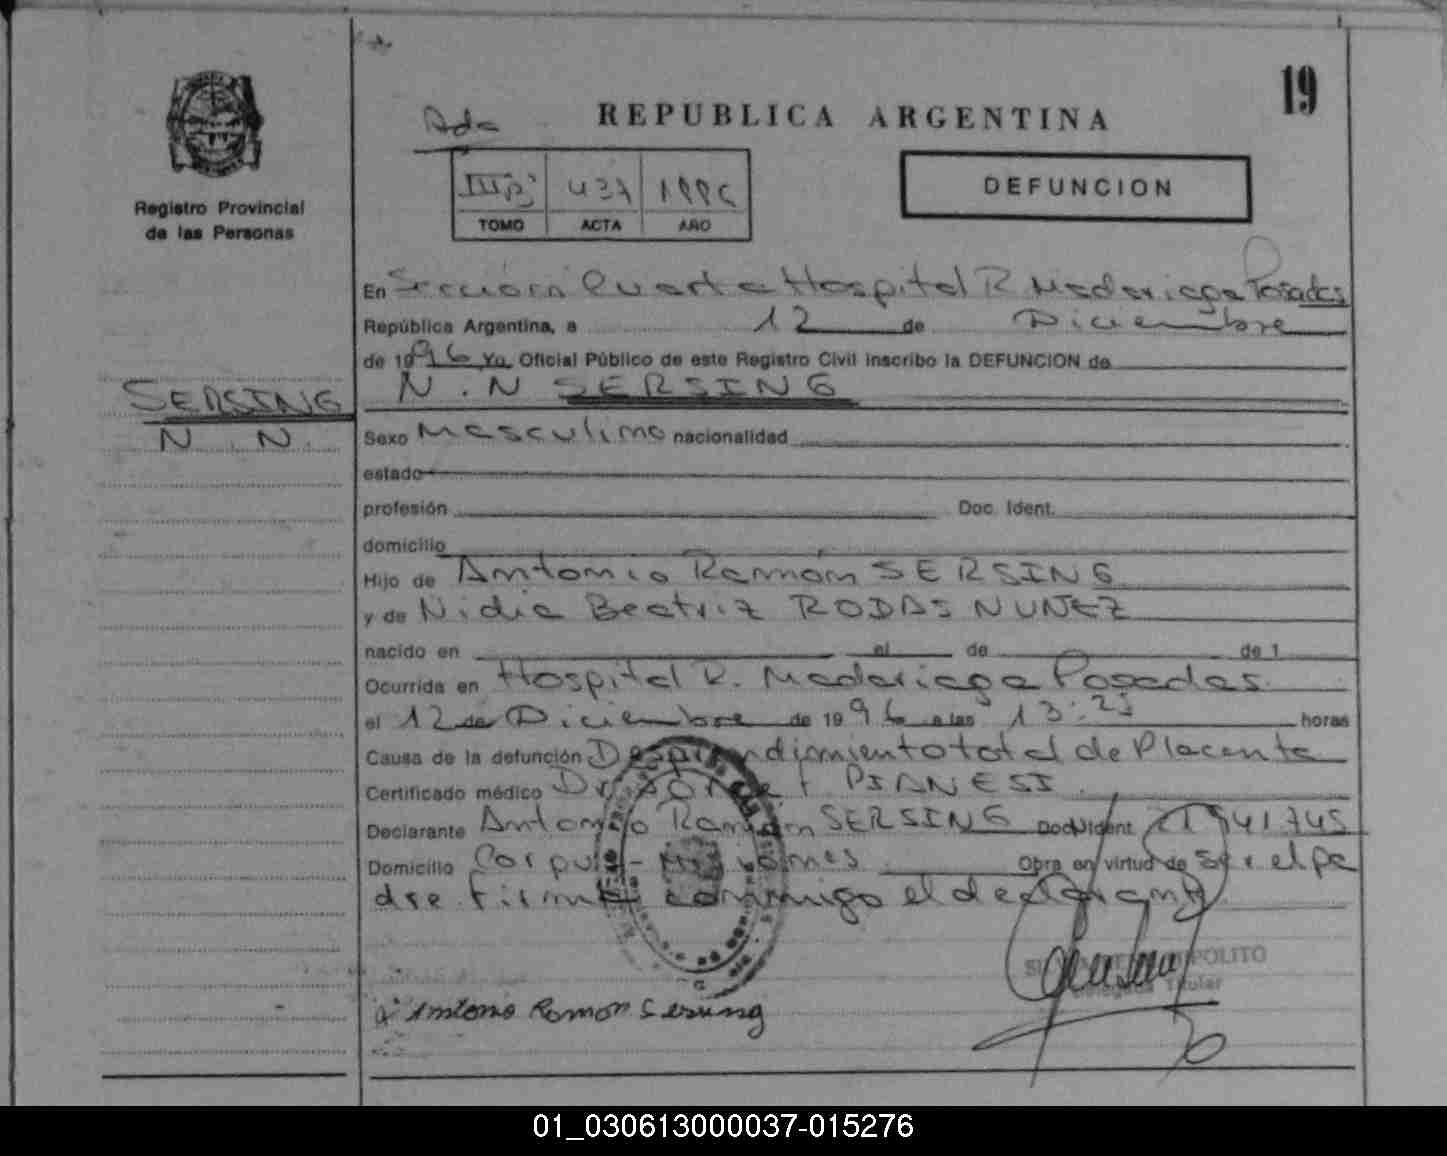 19
Ada
REPUBLICA ARGENTINA
Registro Provincial
de las Personas
III 437 1996
TOMO ACTA AÑO
DEFUNCION
En Sección Cuarta Hospital R. Madariaga Posadas
República Argentina, a 12 de Diciembre
de 1996 Yo, Oficial Público de este Registro Civil inscribo la DEFUNCION de
N.N SERSING
SERSING
N.N.
Sexo Masculino nacionalidad
estado
profesión Doc. Ident.
domicilio
Hijo de Antonio Ramón SERSING
y de Nidia Beatriz RODAS NUÑEZ
nacido en el de de 1
Ocurrida en Hospital R. Madariaga Posadas
el 12 de Diciembre de 1996 a las 13:25 horas
Causa de la defunción Desprendimiento total de Placenta
Certificado médico Dr. PIANESI
Declarante Antonio Ramón SERSING Doc. Ident. 41.745
Domicilio Corpus - Misiones Obra en virtud de Ser el pa
dre. Firma conmigo el declarante
POLITO
Delegada Titular
Antonio Ramon Sersing
01_030613000037-015276